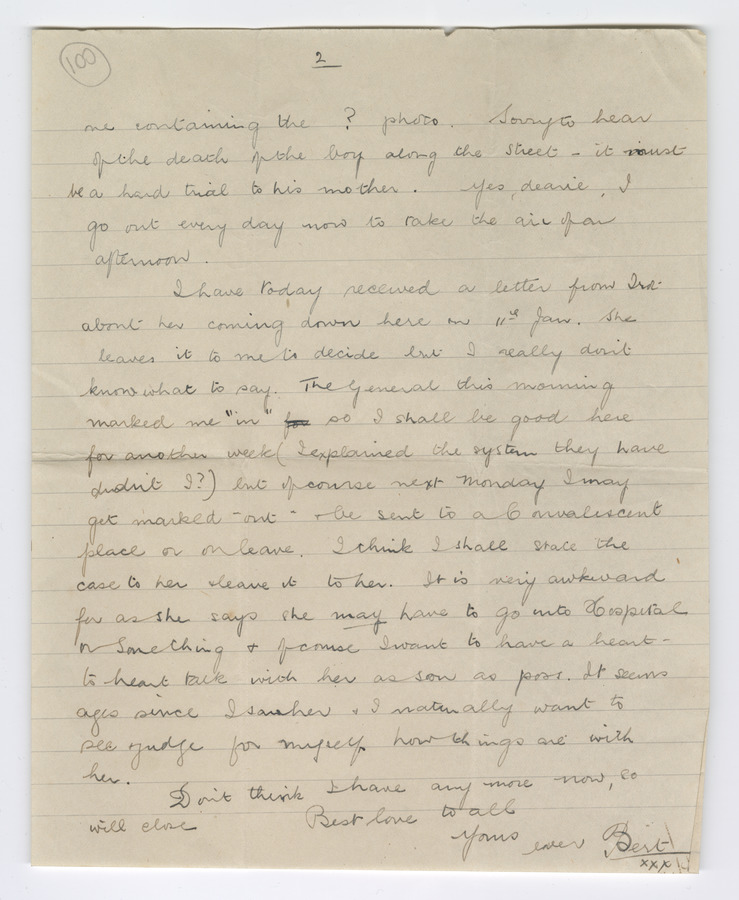 100
2
one containing the ? photo. Sorry to hear
of the death of the boy along the street - it must
be a hard trial to his mother. Yes, dearie, I
go out every day now to take the air of an
afternoon.
I have today received a letter from
about her coming down here on 11th Jan. She
leaves it to me to decide but I really don't
know what to say. The General this morning
marked me "in" for so I shall be good here
for another week (I explained the system they have
didn't I?) but of course next Monday I may
get marked "out" & be sent to a Convalescent
place or on leave. I think I shall state the
case to her & leave it to her. It is very awkward
for as she says she may have to go into Hospital
or something & of course I want to have a heart-
to heart talk with her as soon as poss. It seems
ages since I saw her & I naturally want to
see & judge for myself how things are with
her.
Don't think I have any more now, so
will close Best love to all
Yours ever Bert
xxx